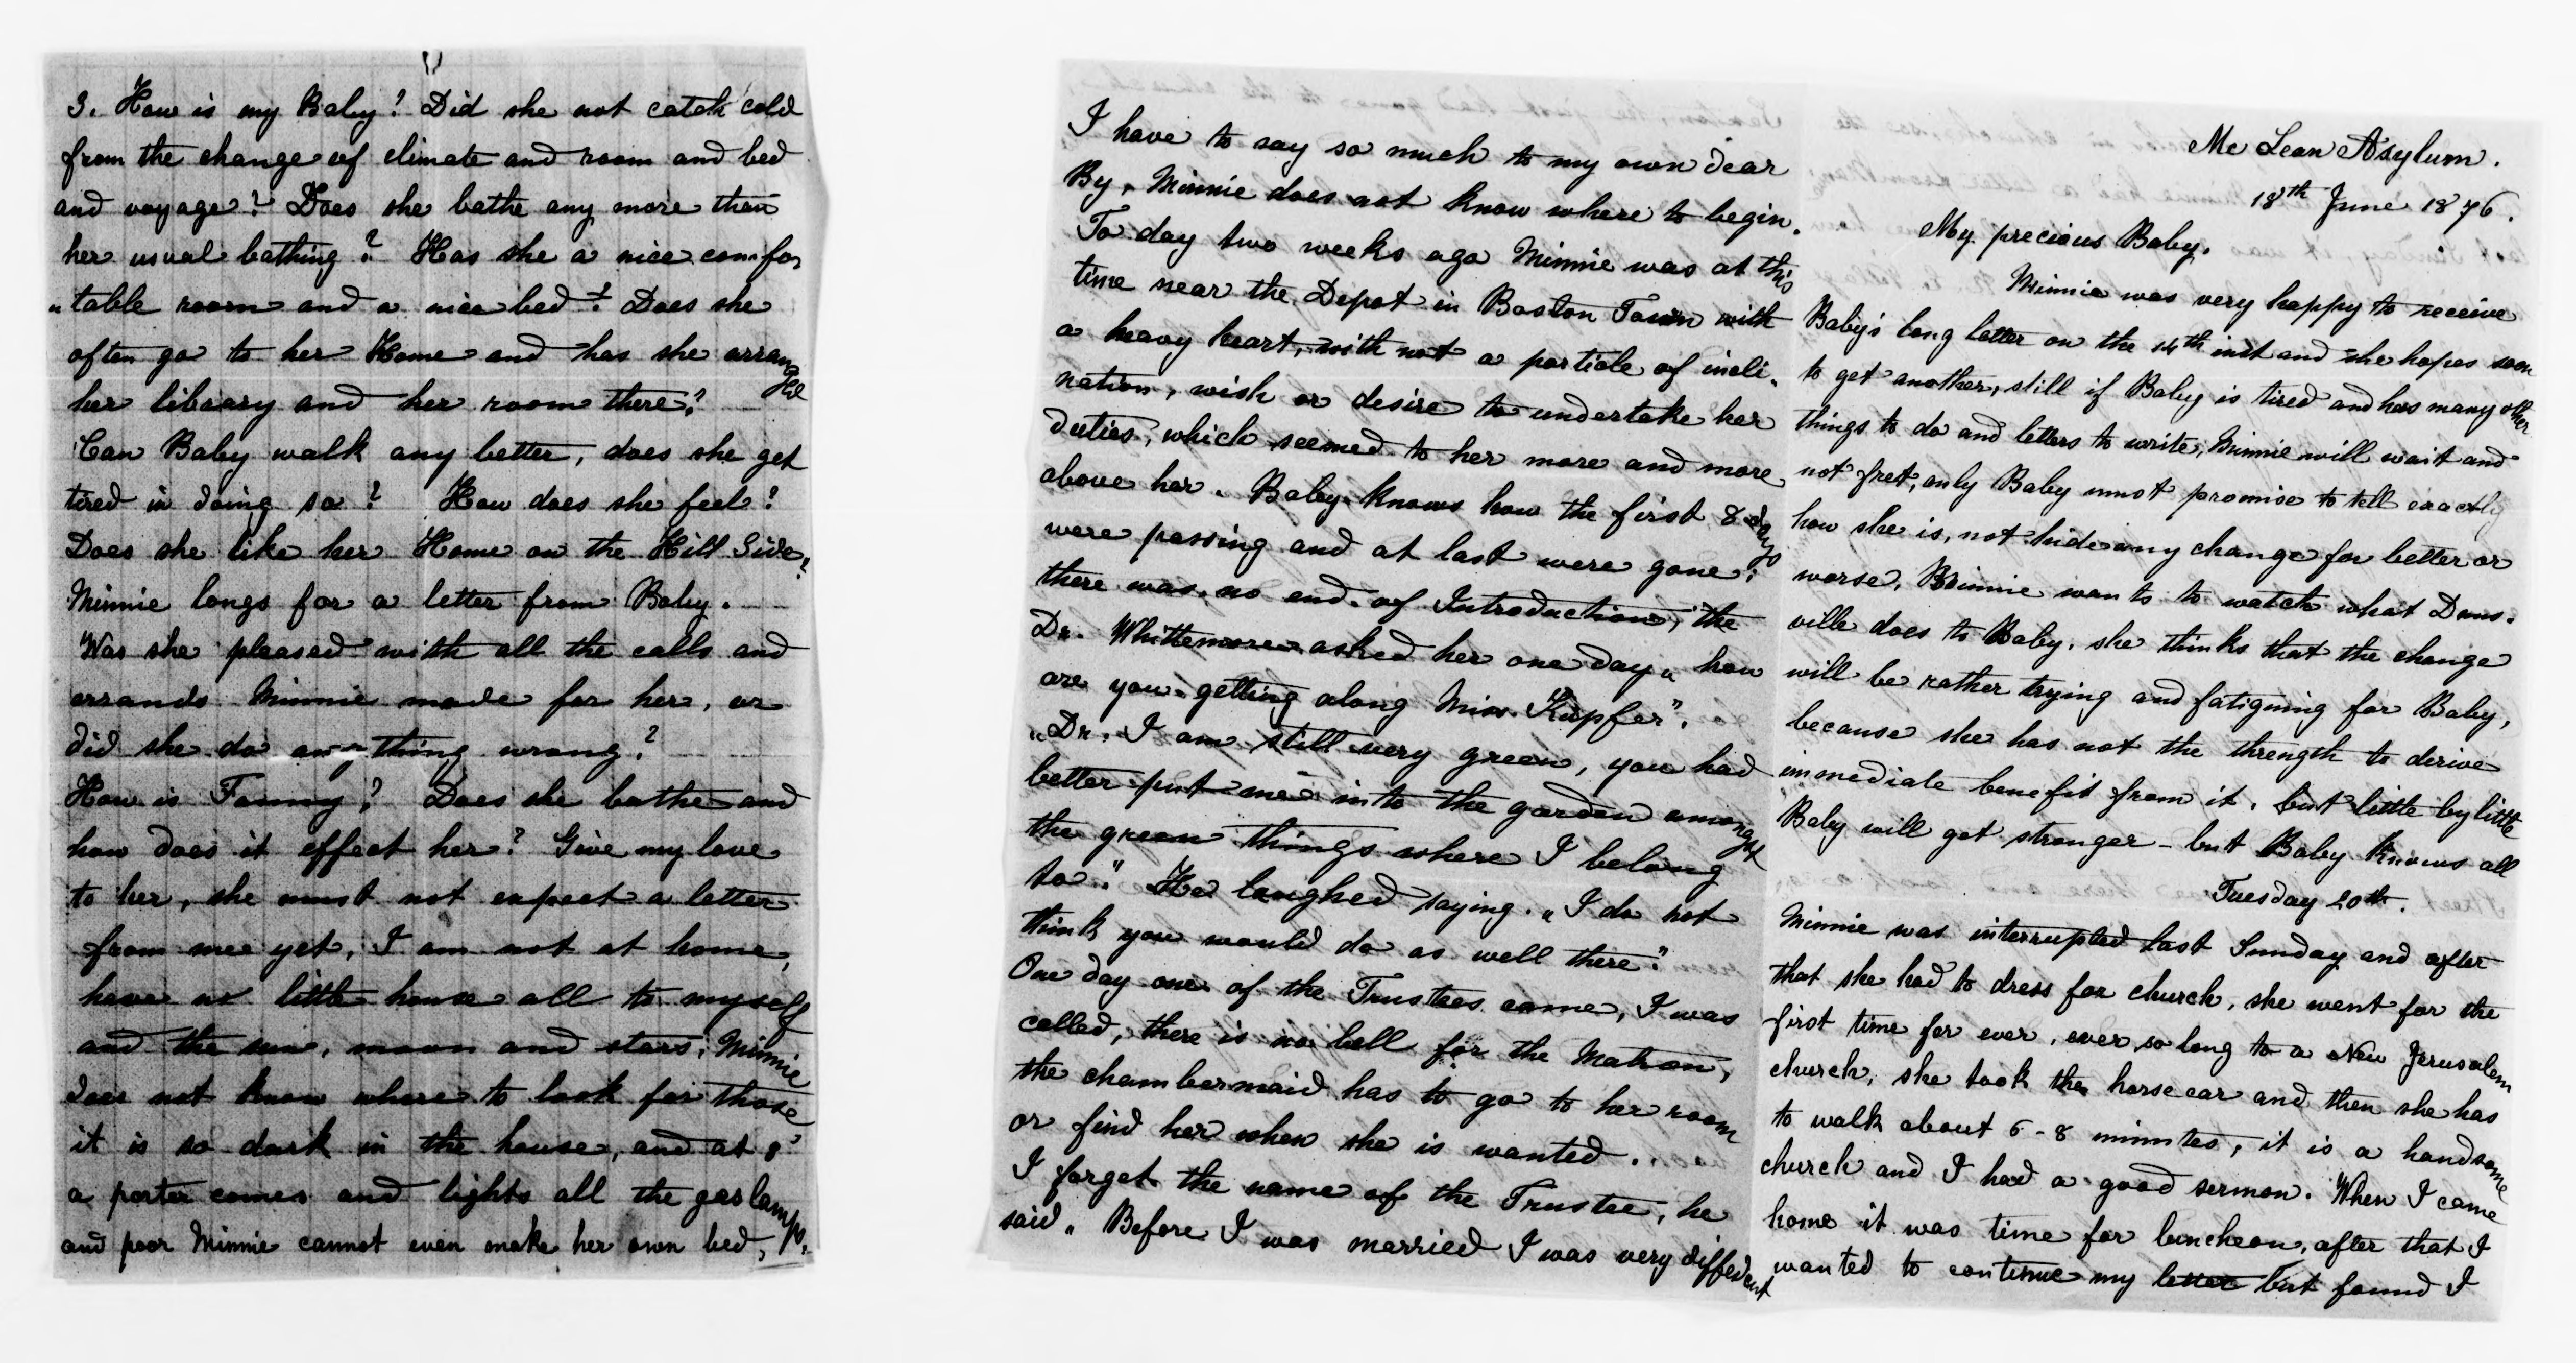 3. How is my Baby? Did she not catch cold
from the change of climate and room and bed
and voyage? Does she bathe any more than
her usual bathing? Has she a nice comfor
"table room and a nice bed? Does she
often go to her Home and has she arranged
her library and her room there?
Can Baby walk any better, does she get
tired in doing so? How does she feel?
Does she like her Home on the Hill Side?
Minnie longs for a letter from Baby.
Was she pleased with all the calls and
errands Minnie made for her, or
did she do anything wrong?
How is Fanny? Does she bathe and
how does it effect her? Give my love
to her, she must not expect a letter
from me yet, I am not at home,
have no little house all to myself
and the sun, moon and stars, Minnie
does not know where to look for those
it is so dark in the house, and at 8
a porter comes and lights all the gaslamps,
and poor Minnie cannot even make her own bed,
I have to say so much to my own dear
By, Minnie does not know where to begin.
To day two weeks ago Minnie was at this
time near the Depot in Boston Town with
a heavy heart, with not a particle of incli-
nation, wish or desire to undertake her
duties, which seemed to her more and more
above her. Baby knows how the first 8 days
were passing and at last were gone;
there was no end of Introduction, the
Dr. Whittemore asked her one day „ how
are you getting along Miss Kupfer".
„Dr. I am still very green, you had
better put me into the garden amongst
the green things where I belong
to." He laughed saying. „ I do not
think you would do as well there."
One day one of the Trustees came, I was
called, there is no bell for the Matron,
the chambermaid has to go to her room
or find her when she is wanted.
I forget the name of the Trustee, he
said „ Before I was married I was very different
Mc Lean Asylum.
18th June 1876.
My precious Baby.
Minnie was very happy to receive
Baby's long letter on the 14th inst and she hopes soon
to get another, still if Baby is tired and has many other
things to do and letters to write, Minnie will wait and
not fret, only Baby must promise to tell exactly
how she is, not hide any change for better or
worse. Minnie wants to watch what Dans-
ville does to Baby, she thinks that the change
will be rather trying and fatiguing for Baby,
because she has not the thrength to derive
immediate benefit from it, but little by little
Baby will get stronger - but Baby knows all
Tuesday 20th.
Minnie was interrupted last Sunday and after
that she had to dress for church, she went for the
first time for ever, ever so long to a New Jerusalem
church, she took the horsecar and then she has
to walk about 6-8 minutes, it is a handsome
church and I had a good sermon. When I came
home it was time for luncheon, after that I
wanted to continue my letter but found I